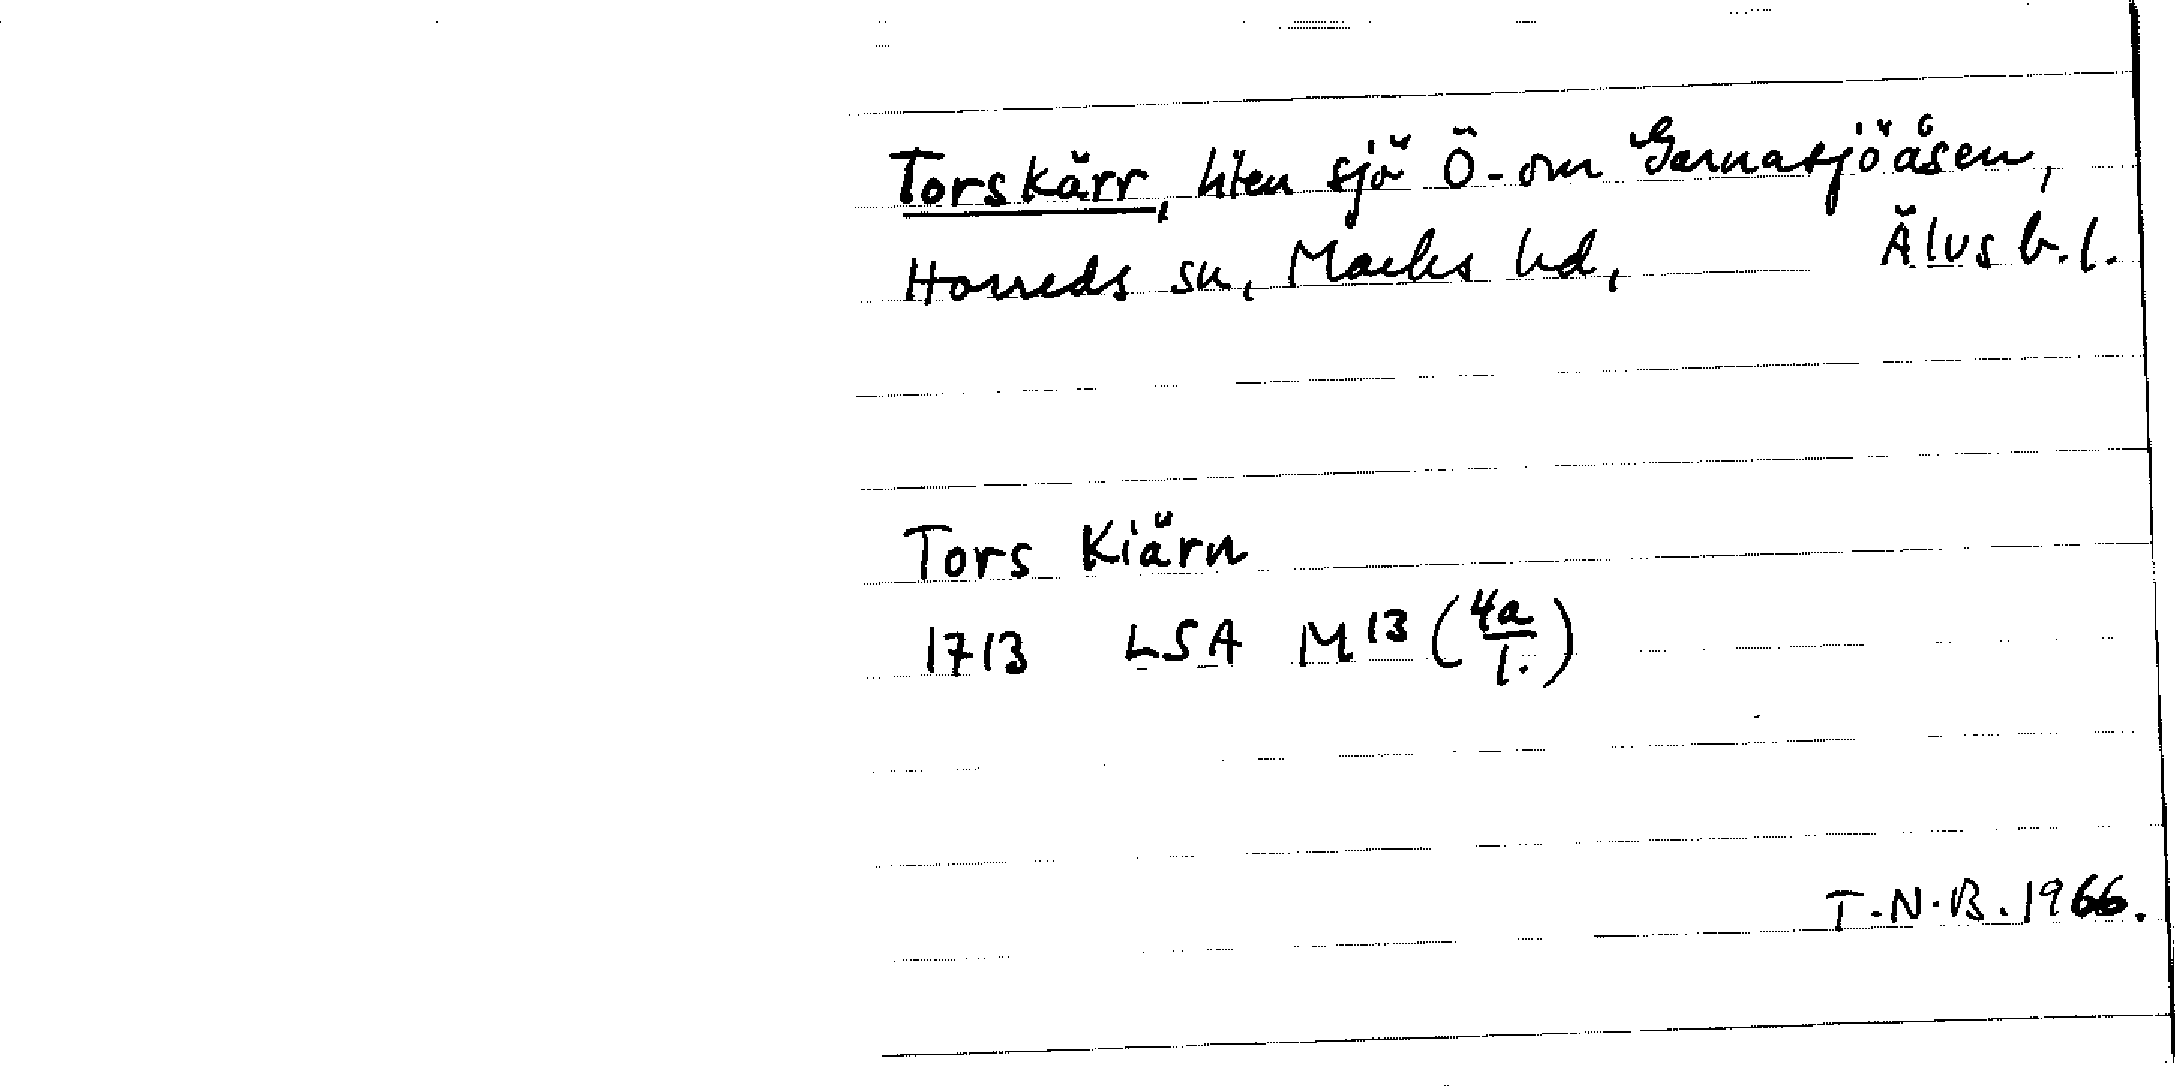 Torskärr, liten sjö Ö-om Gernasjöåsen,
Horreds sn, Marks hd, Älvsb. l.
Tors Kiärn
1713 LSA M13 (4a/1.)
T.N.B. 1966.